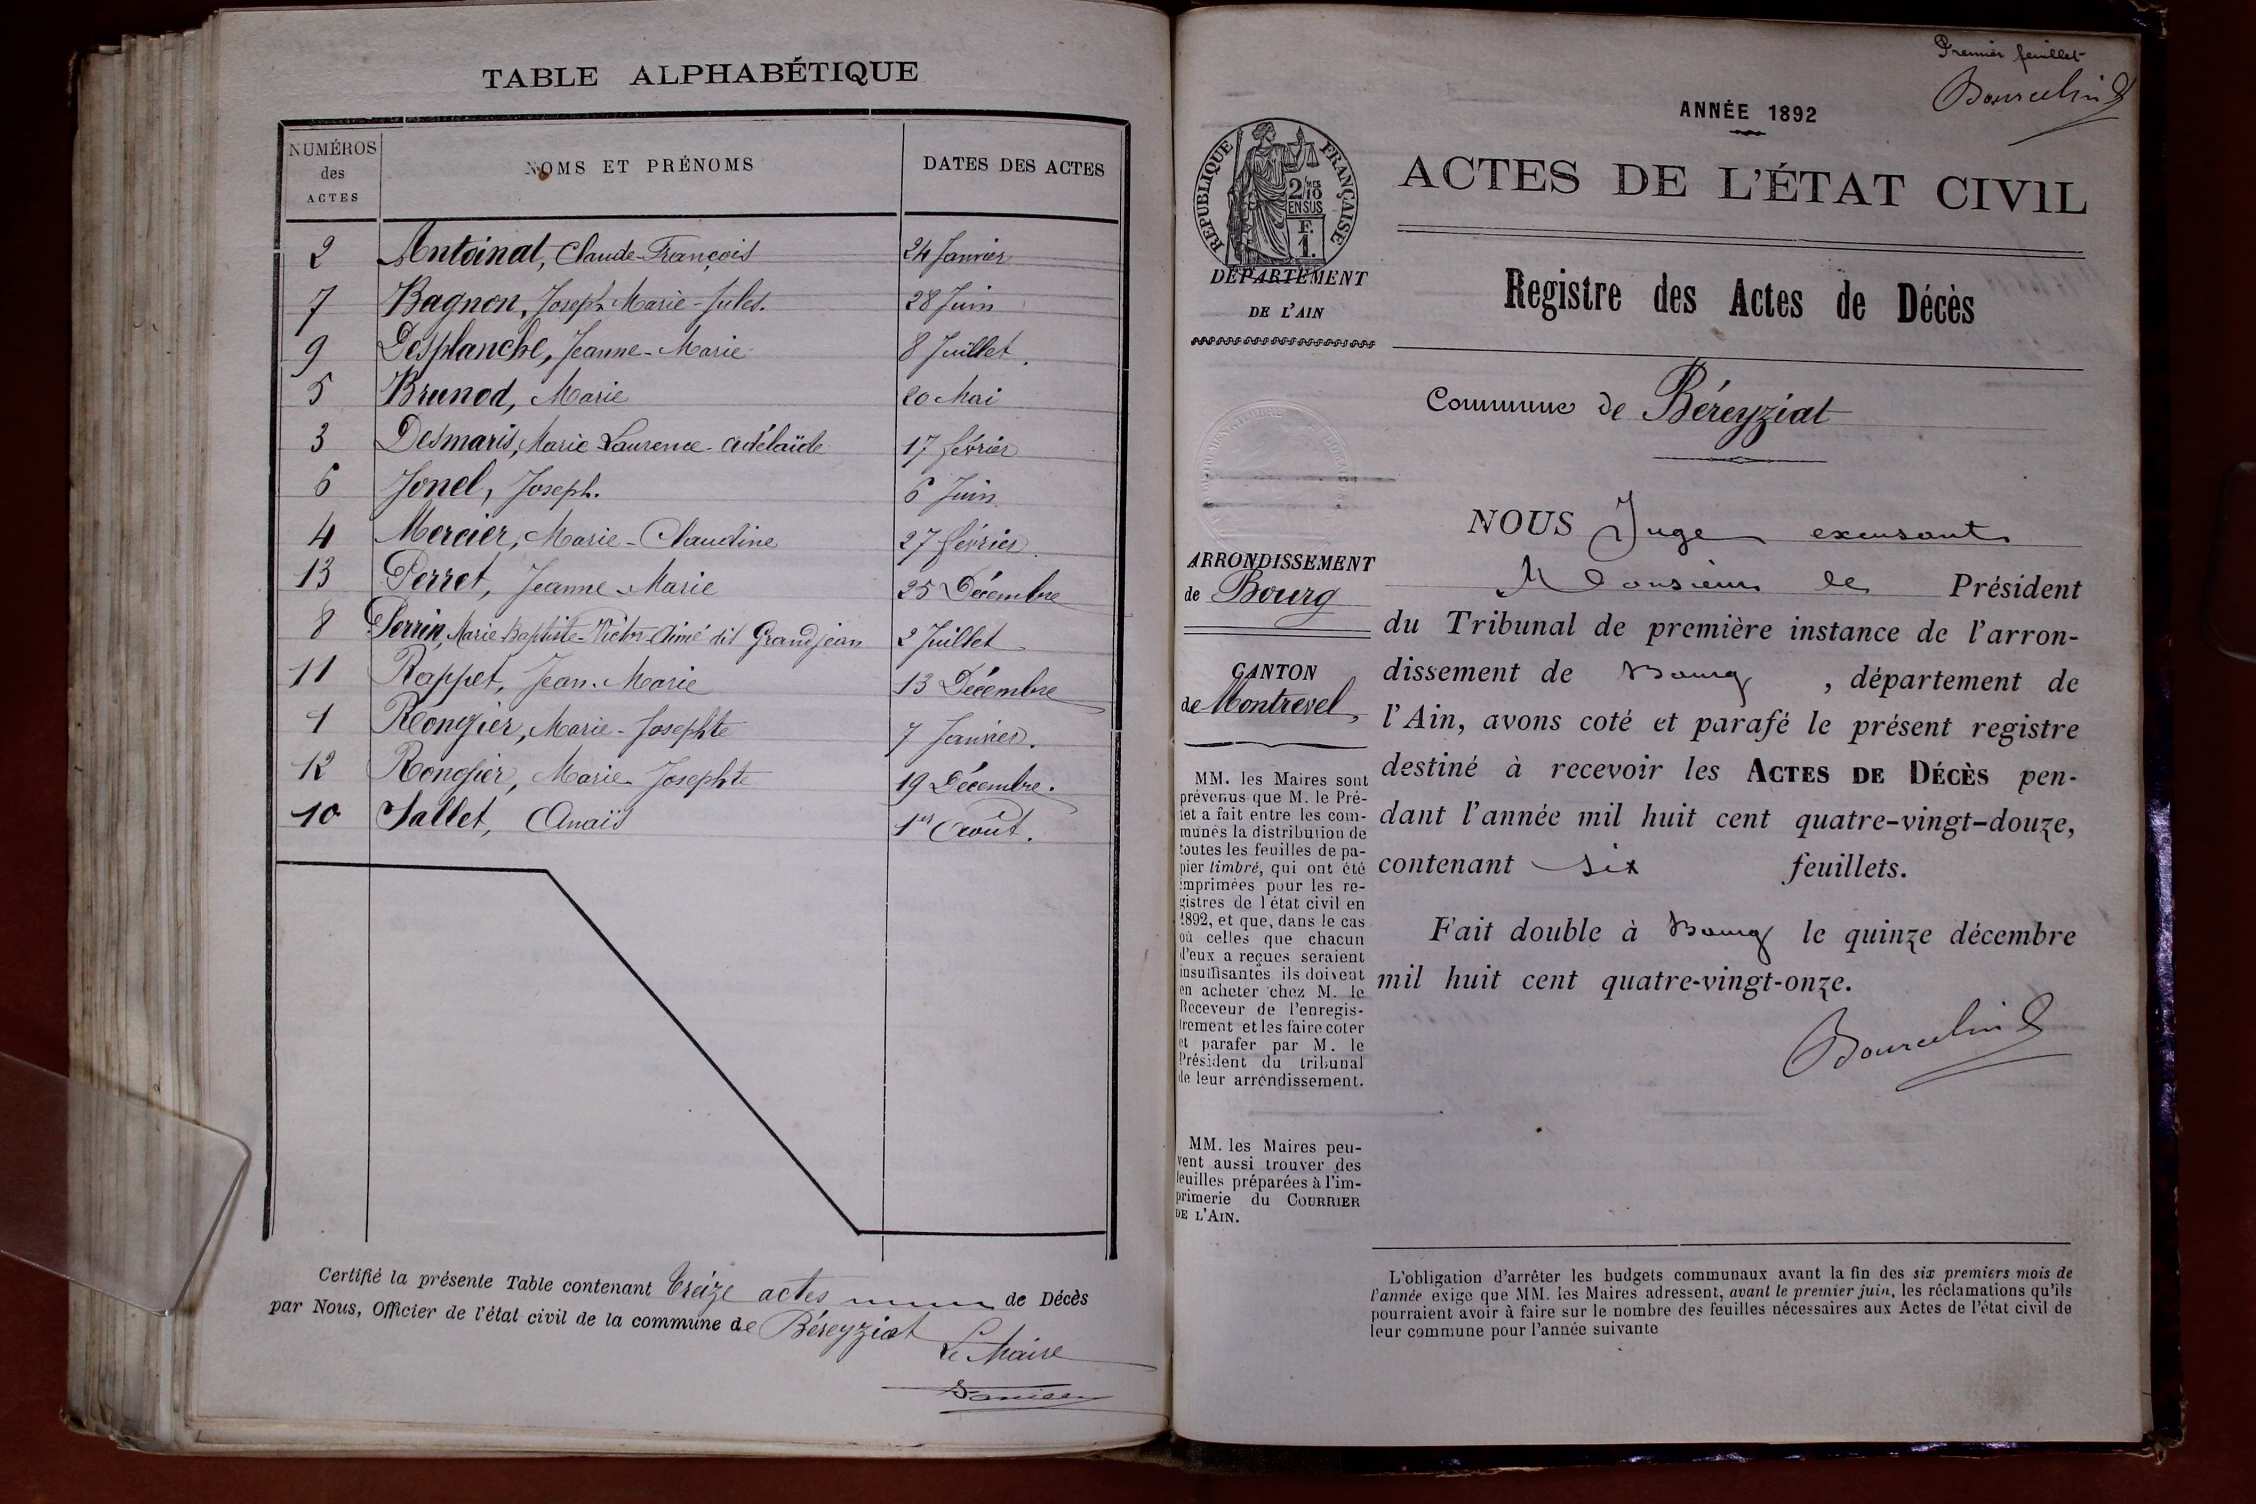 TABLE ALPHABÉTIQUE
NUMÉROS des ACTES NOMS ET PRÉNOMS DATES DES ACTES
2 Antoinat, Claude-François 24 Janvier
7 Bagnon, Joseph Marie-Jules. 28 Juin
9 Desplanche, Jeanne-Marie 8 Juillet.
5 Brunod, Marie 20 Mai
3 Desmaris, Marie Laurence-Adélaïde 17 février
6 Jonel, Joseph. 6 Juin
4 Mercier, Marie-Claudine 27 février.
13 Perret, Jeanne-Marie 25 Décembre
8 Perrin, Marie Baptiste-Victor-Aimé dit Grandjean 2 Juillet
11 Rappet, Jean-Marie 13 Décembre
1 Rongier, Marie-Josephte 7 Janvier.
12 Rongier, Marie-Josephte 19 Décembre.
10 Sallet, Anaïs 1er Août.
Certifié la présente Table contenant treize actes de Décès
par Nous, Officier de l'état civil de la commune de Béreyziat
Le Maire
Premier feuillet
Bourcelin
ANNÉE 1892
RÉPUBLIQUE FRANÇAISE
2/10 MES
EN SUS
F.
1.
ACTES DE L'ÉTAT CIVIL
DÉPARTEMENT
DE L'AIN
Registre des Actes de Décès
Commune de Béreyziat
ARRONDISSEMENT
de Bourg
CANTON
de Montrevel,
MM. les Maires sont
prévenus que M. le Pré-
fet a fait entre les com-
munes la distribution de
toutes les feuilles de pa-
pier timbré, qui ont été
imprimées pour les re-
gistres de l'état civil en
1892, et que, dans le cas
où celles que chacun
d'eux a reçues seraient
insuffisantes ils doivent
en acheter chez M. le
Receveur de l'enregis-
trement et les faire coter
et parafer par M. le
Président du tribunal
de leur arrondissement.
MM. les Maires peu-
vent aussi trouver des
feuilles préparées à l'im-
primerie du COURRIER
DE L'AIN.
NOUS Juge excusant
Monsieur le Président
du Tribunal de première instance de l'arron-
dissement de Bourg, département de
l'Ain, avons coté et parafé le présent registre
destiné à recevoir les ACTES DE DÉCÈS pen-
dant l'année mil huit cent quatre-vingt-douze,
contenant six feuillets.
Fait double à Bourg le quinze décembre
mil huit cent quatre-vingt-onze.
Bourcelin
L'obligation d'arrêter les budgets communaux avant la fin des six premiers mois de
l'année exige que MM. les Maires adressent, avant le premier juin, les réclamations qu'ils
pourraient avoir à faire sur le nombre des feuilles nécessaires aux Actes de l'état civil de
leur commune pour l'année suivante